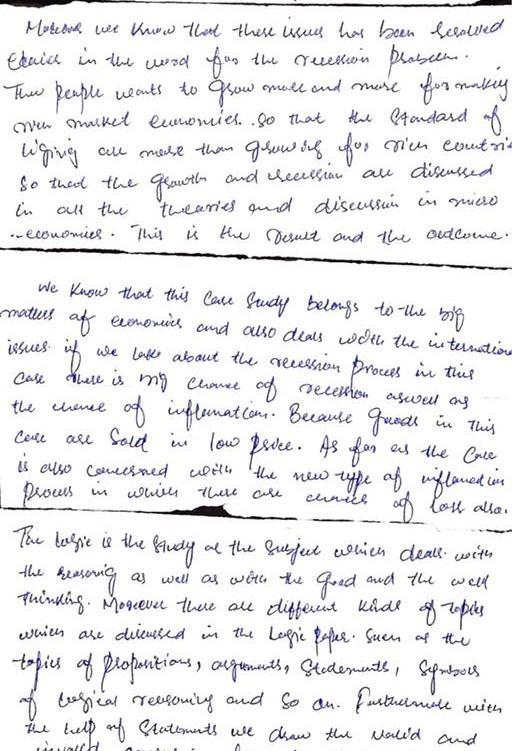 Moreover we know that these issues has been resolved
in the word for the recession problem.
The people wants to grow more and more for making
own market economies. So that the standard of
living are more than growing for rich
So that the growth and recession are discussed
in all the theories and discussion in micro
economies. This is the result and the outcome.
We know that this case study belongs to the big
matters of economics and also deals with the
issues. if we talk about the recession process in this
case there is big chance of recession aswell as
the chance of inflamation. Because goods in this
case are sold in low price. As far as the case
is also concerned with the new type of
process in which there are chance of loss also.
The logic is the study of the subject which deals with
the reasoning as well as with the good and the well
thinking. Moreover there are different kinds of topics
which are discussed in the logic paper. Such as the
topics of propositions, arguments, statements, symbols
of logical reasoning and so on. Furthermore with
the help of statements we draw the valid and